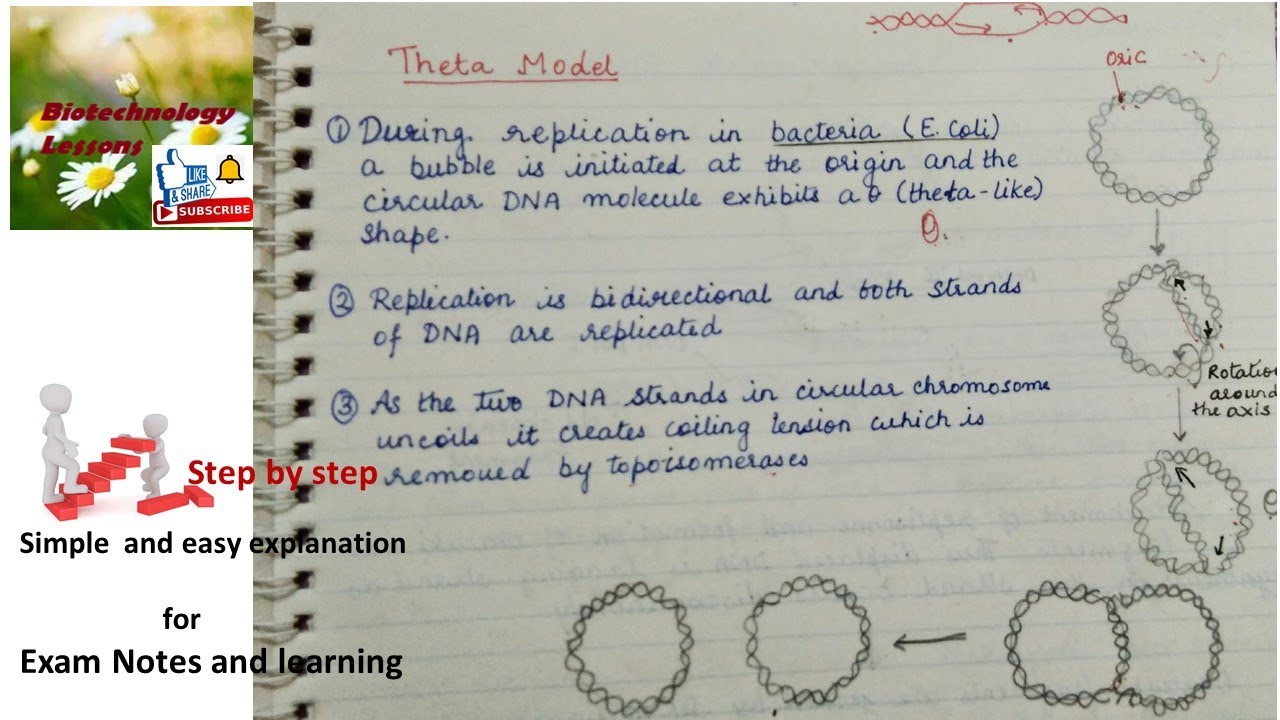 Biotechnology
Lessons
LIKE
& SHARE
SUBSCRIBE
Step by step
Simple and easy explanation
for
Exam Notes and learning
Theta Model
① During replication in bacteria (E. coli)
a bubble is initiated at the origin and the
circular DNA molecule exhibits a θ (theta-like)
shape.
θ.
② Replication is bidirectional and both strands
of DNA are replicated
③ As the two DNA strands in circular chromosome
uncoils it creates coiling tension which is
removed by topoisomerases
oric
Rotation
around
the axis
θ